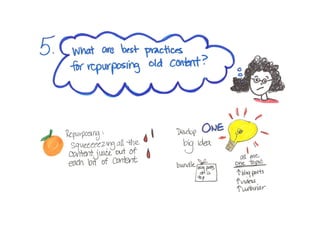 5.
What are best practices
for repurposing old content?
Repurposing:
Squeezing all the
content juice out of
each bit of content
Develop ONE
big idea
bundle
blog posts
all on one topic
↑ blog posts
↑ videos
↑ webinar